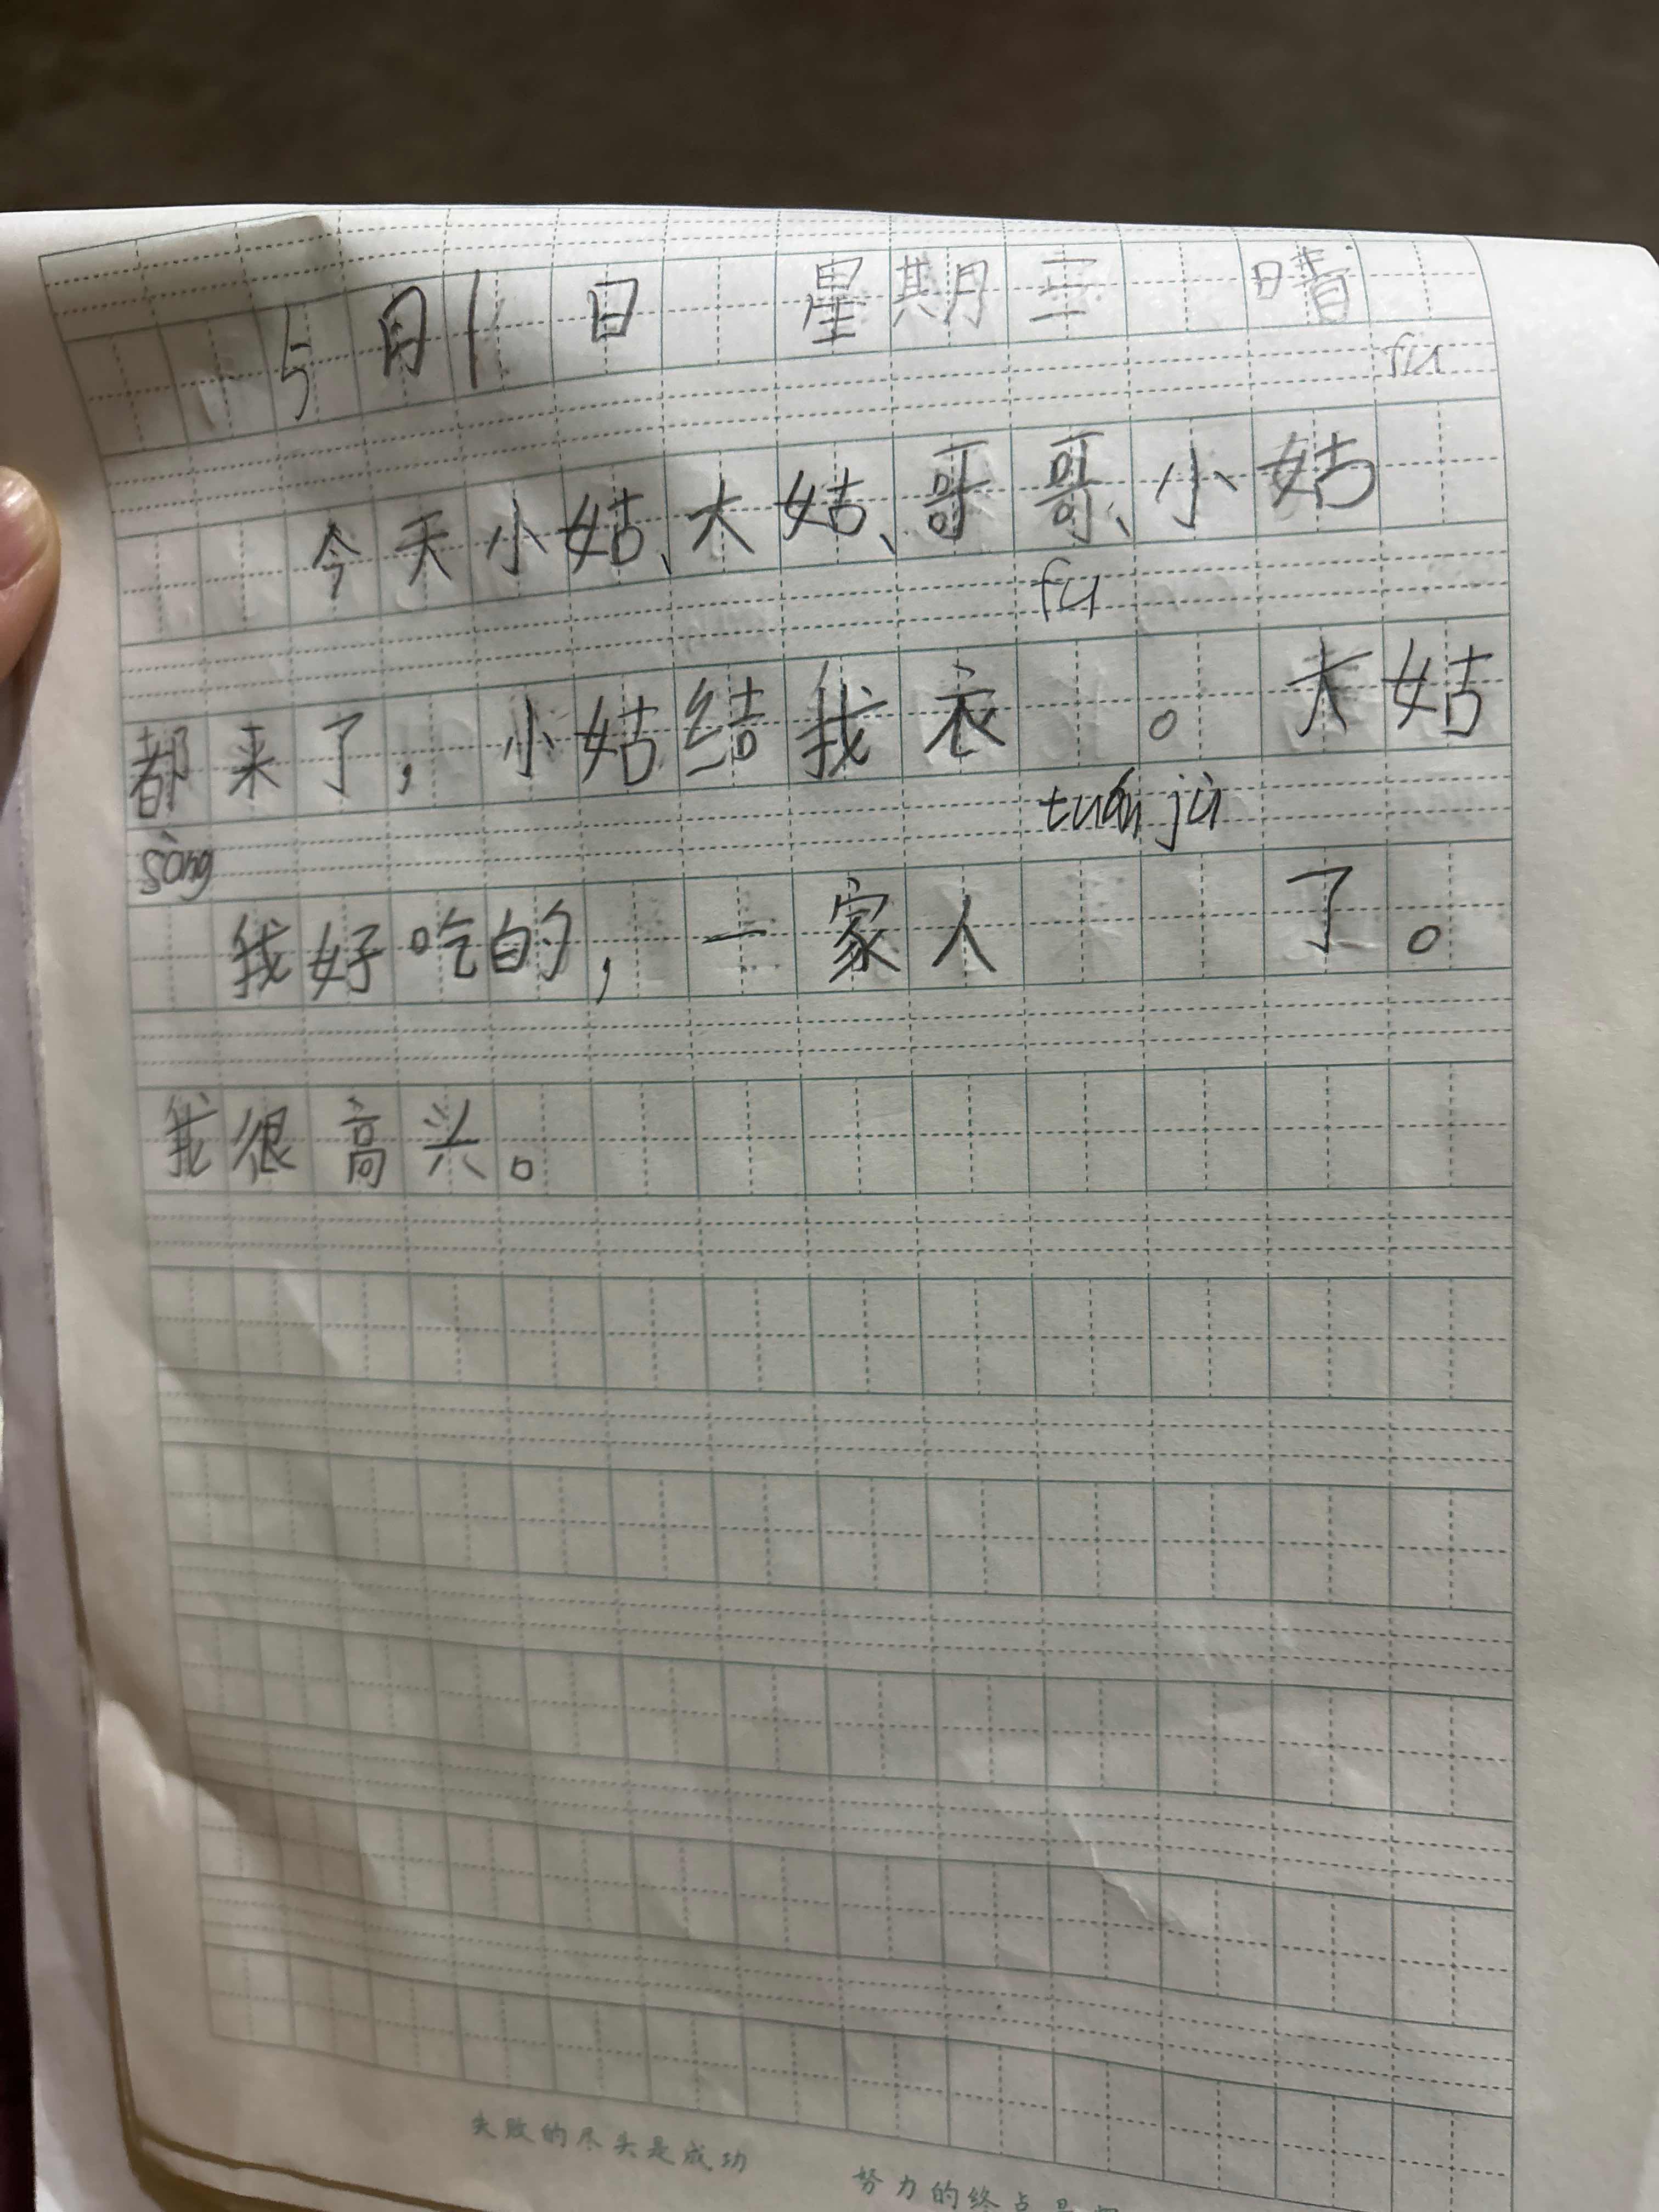 5月1日 星期三 晴
fu
今天小姑、大姑、哥哥、小姑
fu
都来了，小姑结我衣 。大姑
tuán jù
sòng
我好吃的，一家人 了。
我很高兴。
失败的尽头是成功
努力的终点是